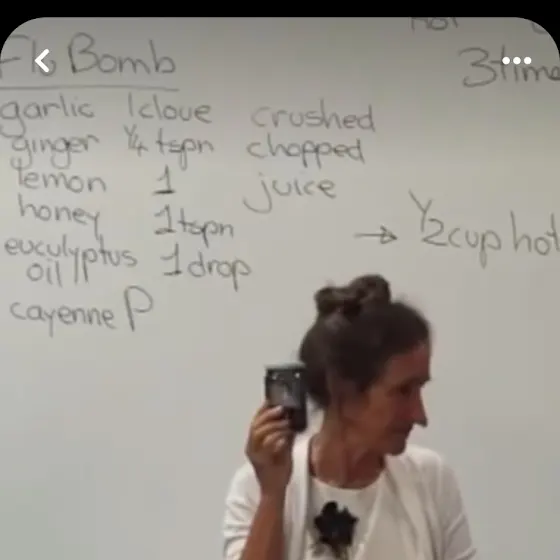 Flu Bomb
3 time
garlic 1 clove crushed
ginger 1/4 tspn chopped
lemon 1 juice
honey 1 tspn
→ 1/2 cup hot
euculyptus oil 1 drop
cayenne P